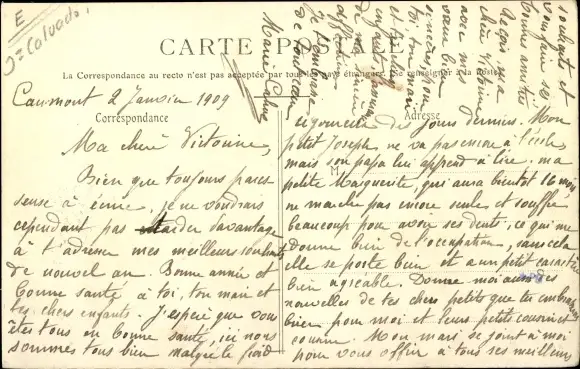 E
Calvados
CARTE POSTALE
La Correspondance au recto n'est pas acceptée par tous les pays étrangers. Se renseigner à la poste
Correspondance
Adresse
Caumont 2 Janvier 1909
Ma chère Victorine,
Bien que toujours pares
seuse à écrire, je ne voudrais
cependant pas tarder davantage
à t'adresser mes meilleurs souhaits
de nouvel an. Bonne année et
bonne santé à toi, ton mari et
tes chers enfants. J'espère que vous
êtes tous en bonne santé, ici nous
sommes tous bien malgré le froid
rigoureux des jours derniers. Mon
petit Joseph ne va pas encore à l'école
mais son papa lui apprend à lire. ma
petite Marguerite, qui aura bientôt 16 mois
ne marche pas encore seule et souffre
beaucoup pour avoir ses dents, ce qui me
donne bien de l'occupation, sans cela
elle se porte bien et a un petit caractère
bien agréable. Donne moi aussi des
nouvelles de tes chers petits que tu embrasseras
bien pour moi et leurs petits cousin et
cousine. Mon mari se joint à moi
pour vous offrir à tous ses meilleurs
souhaits et
bonnes amitiés
Reçois ma
chère Victorine
avec mes
vœux bien
sincères pour
toi ton mari
et petits
enfants
affection
je t'embrasse
de tout cœur
Marie